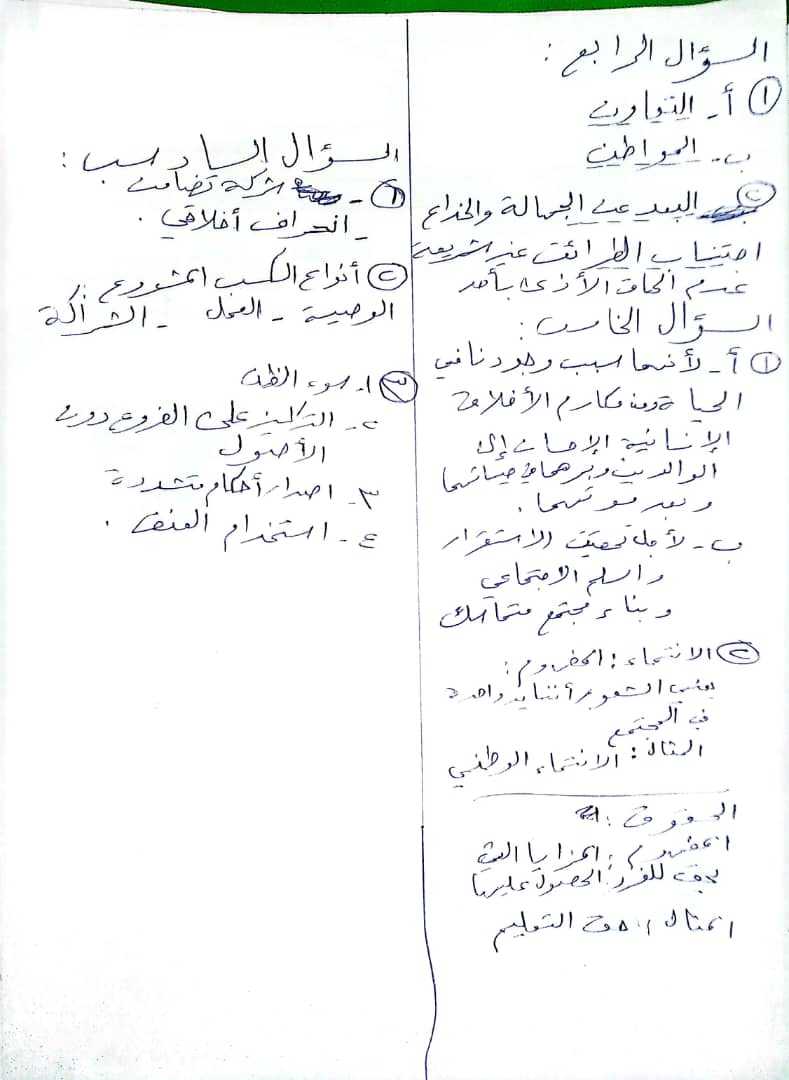 السؤال الرابع :
١ أ - التعاون
ب - المواطن
٢ البعد عن الجهالة والخداع
اجتناب الطرائق غير شريعة
عدم الحاق الأذى بأحد
السؤال الخامس :
١ أ - لأنهما سبب وجودنا في
الحياة ومن مكارم الأخلاق
الإنسانية الإحسان إلى
الوالدين وبرهما في حياتهما
وبعد موتهما .
ب - لأجل تحقيق الاستقرار
والسلم الاجتماعي
وبناء مجتمع متماسك
٢ الانتماء : المفهوم :
يعني الشعور أننا يد واحدة
في المجتمع
المثال : الانتماء الوطني
الحقوق :
المفهوم : المزايا التي
يحق للفرد الحصول عليها
المثال : حق التعليم
السؤال السادس :
١ - شركة تضامن
- انحراف أخلاقي .
٢ أنواع الكسب المشروع :
الوصية - العمل - الشراكة
٣ ١ - سوء الظن
٢ - التركيز على الفروع دون
الأصول
٣ - اصدار أحكام متشددة
٤ - استخدام العنف .